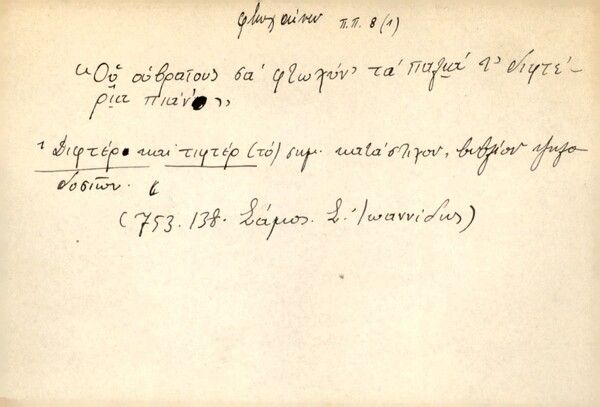 φτωχαίνω π.π. 8 (1)
"Οὑ οὑβραῖους σα' φτωχύν' τα' παλῃά τ' διφτέ-
ρῃα πιάν' ,,
¹ Διφτέρ' και τιφτέρ (τό) σημ. κατάστιχον, βιβλίον ψηφο
δοσιῶν.
(753. 138. Σάμος. Σ. Ἰωαννίδης)